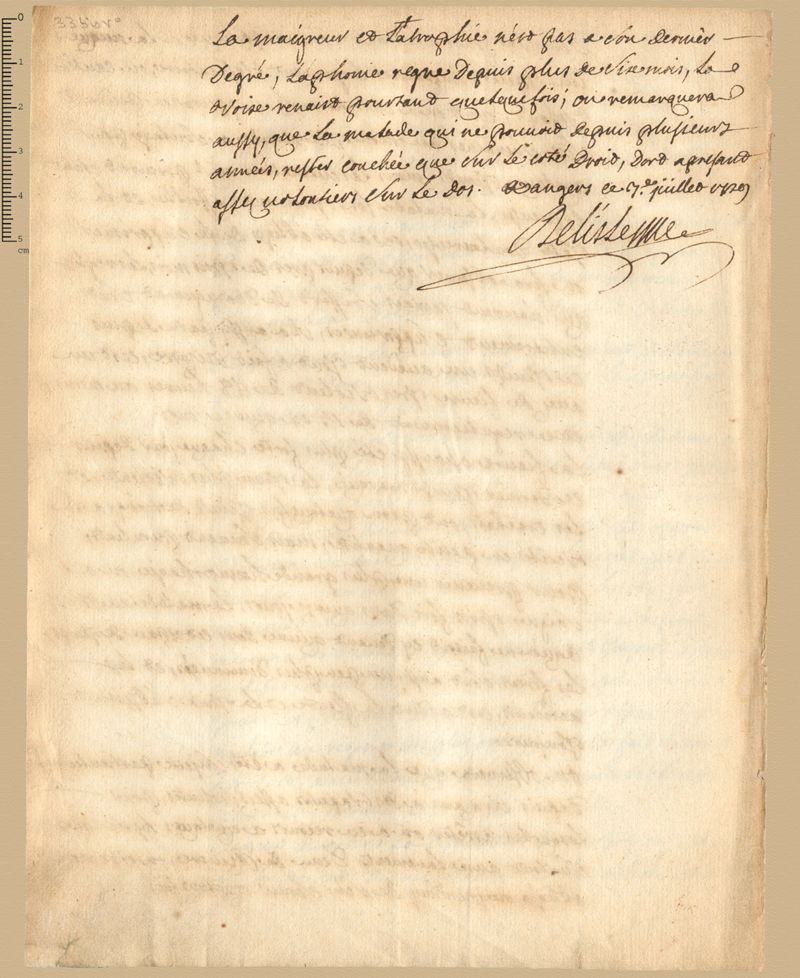 La maigreur et L'atrophie n'est pas a son dernier
Degré, Laphonie regne Depuis plus de Six mois, La
voix renaist pourtant quelquefois; on remarquera
aussy, que La malade qui ne pouvoit depuis plusieurs
années, rester couchée que sur Le coté Droit, Dort apresant
assez volontiers sur Le Dos. angers ce 7e juillet 1729
335 vo
0
1
2
3
4
5
cm